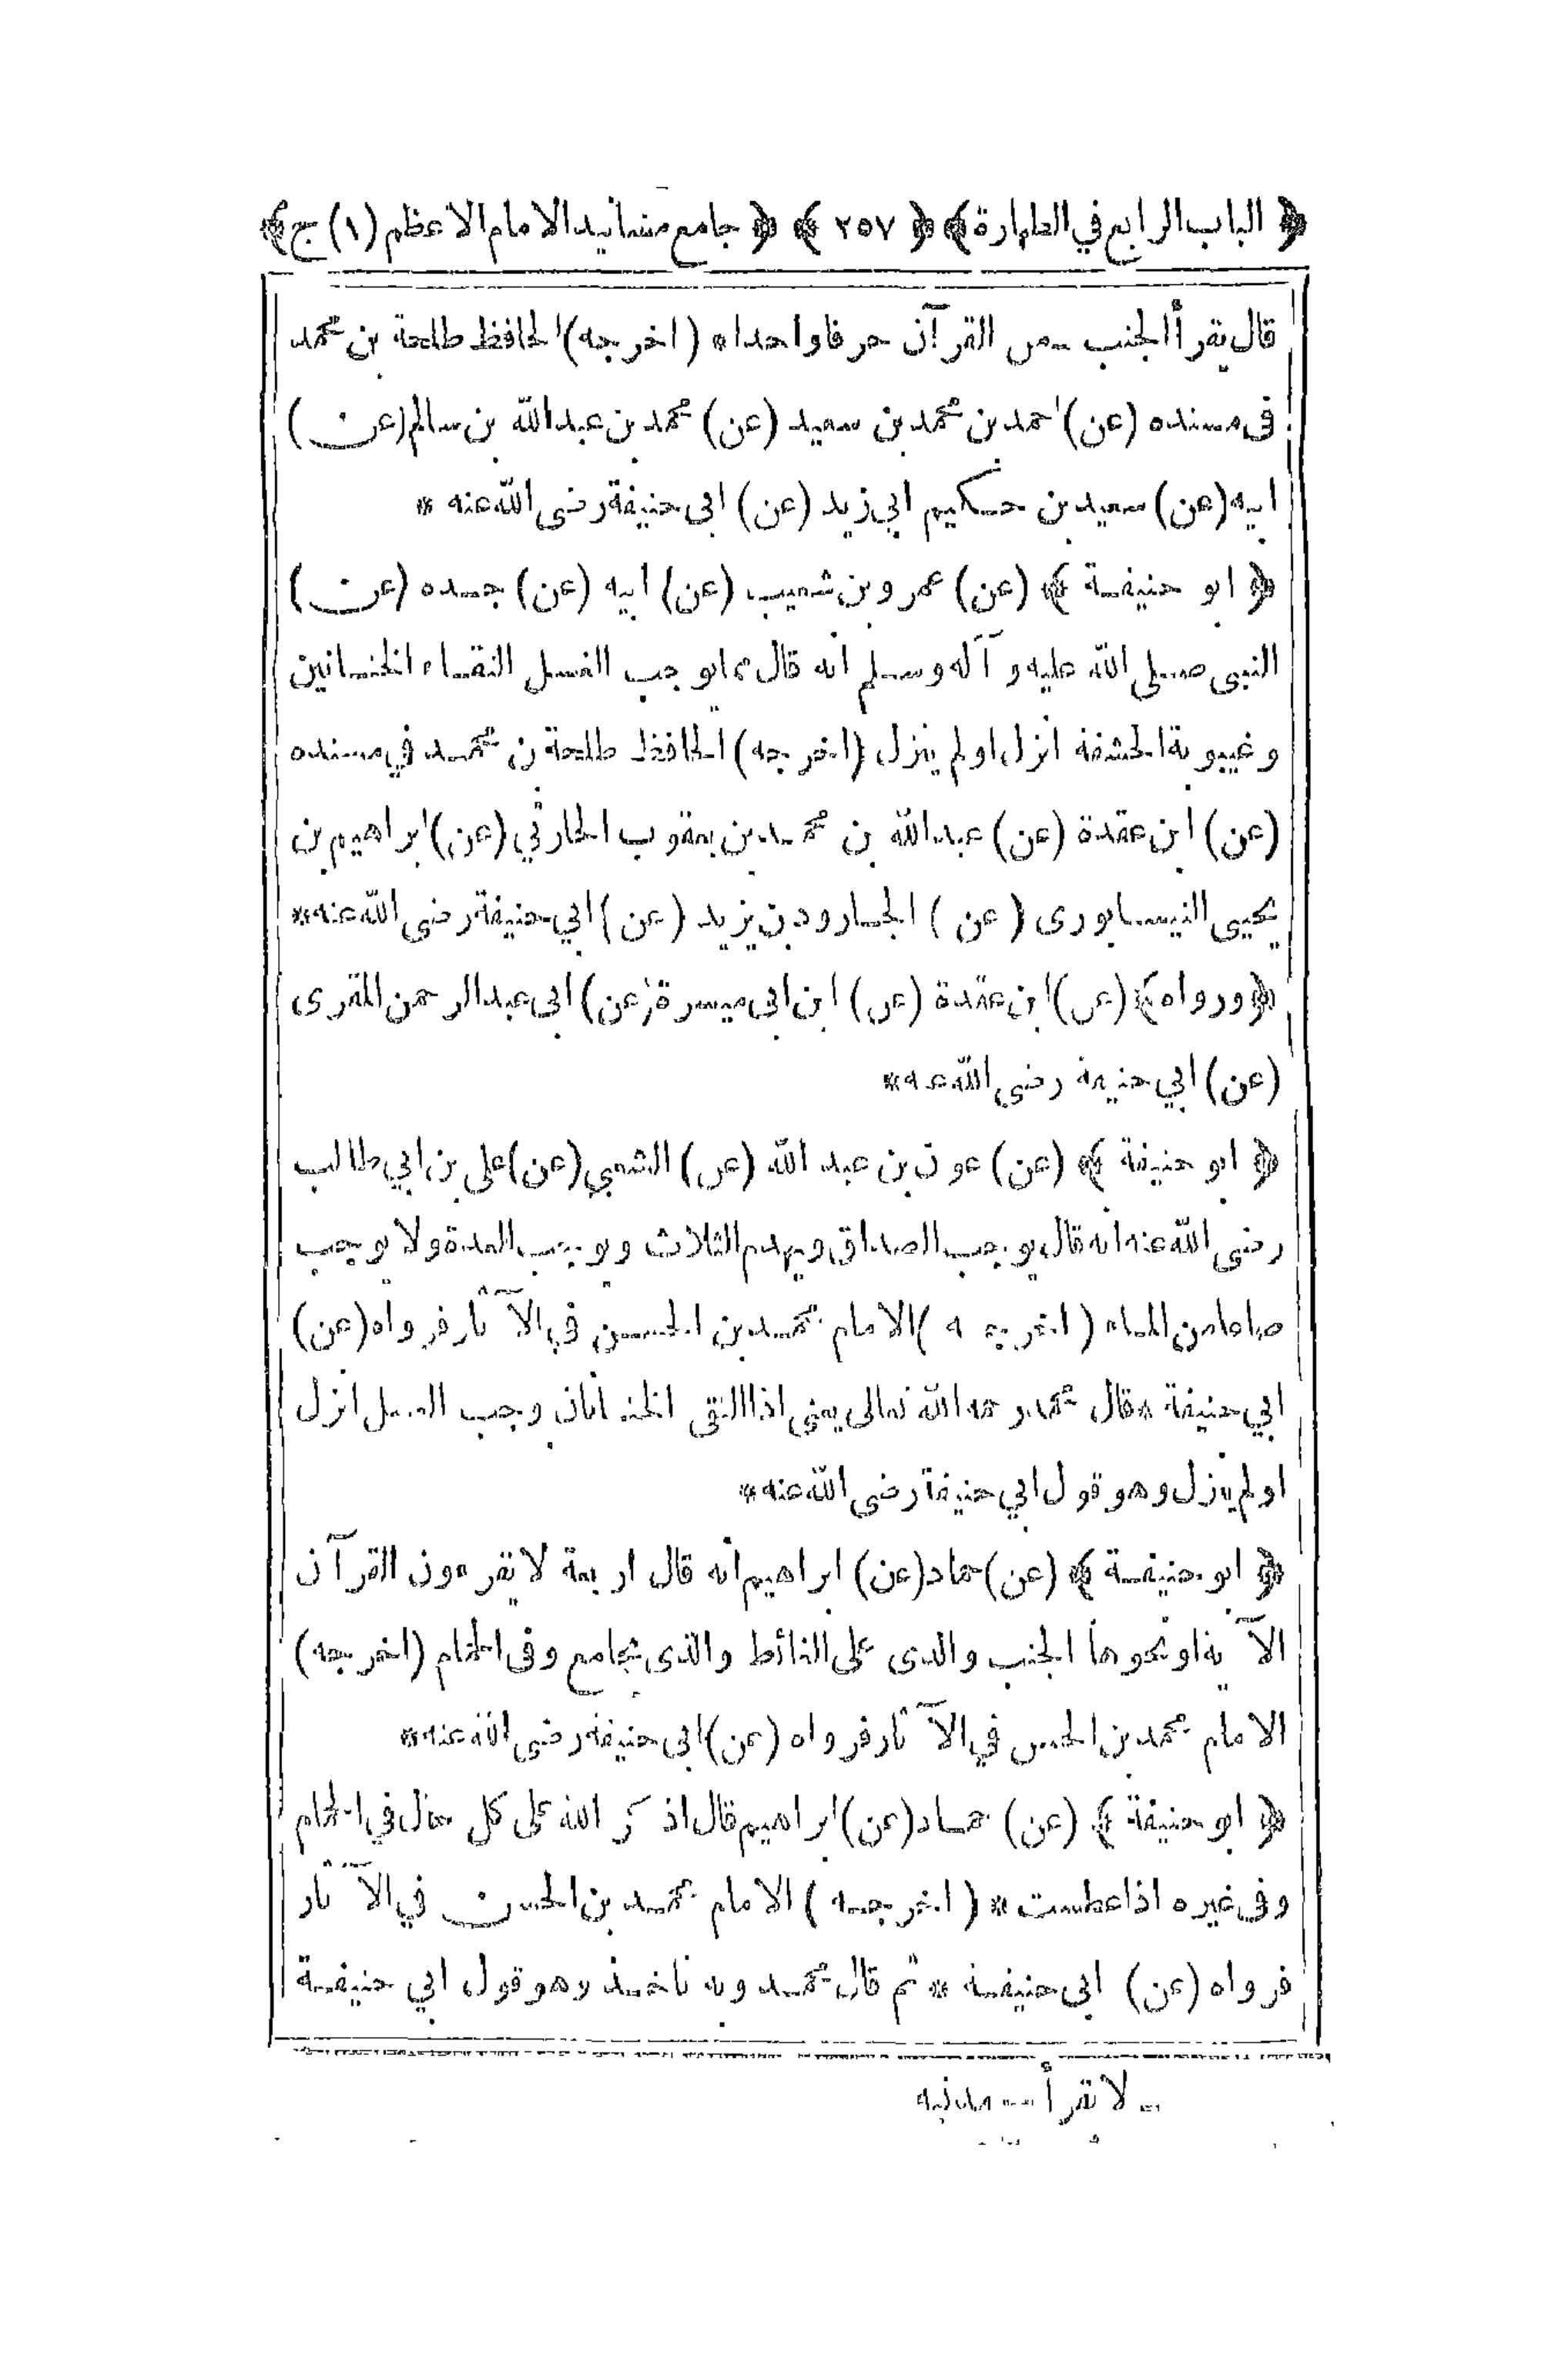 ﴿ الباب الرابع في الطهارة ﴾ ﴿ ٢٥٧ ﴾ ﴿ جامع مسانيد الامام الاعظم (١) ج ﴾
قال يقرأ الجنب من القرآن حرفا واحدا * (اخرجه) الحافظ طلحة بن محمد
فى مسنده (عن) احمد بن محمد بن سعيد (عن) محمد بن عبد الله بن سالم (عن)
ابيه (عن) سعيد بن حكيم ابي زيد (عن) ابى حنيفة رضى الله عنه *
﴿ ابو حنيفة ﴾ (عن) عمرو بن شعيب (عن) ابيه (عن) جده (عن)
النبى صلى الله عليه و آله وسلم انه قال يوجب الغسل التقاء الختانين
وغيبوبة الحشفة انزل او لم ينزل (اخرجه) الحافظ طلحة بن محمد في مسنده
(عن) ابن عقدة (عن) عبد الله بن محمد بن يعقوب الحارثي (عن) ابراهيم بن
يحيى النيسابورى (عن) الجارود بن يزيد (عن) ابي حنيفة رضى الله عنه *
﴿ ورواه ﴾ (عن) ابن عقدة (عن) ابن ابى ميسرة (عن) ابى عبد الرحمن المقرى
(عن) ابي حنيفة رضى الله عنه *
﴿ ابو حنيفة ﴾ (عن) عون بن عبد الله (عن) الشعبي (عن) على بن ابي طالب
رضى الله عنه انه قال يوجب الصداق ويهدم الثلاث ويوجب العدة ولا يوجب
صاعا من الماء (اخرجه) الامام محمد بن الحسن في الآثار فرواه (عن)
ابي حنيفة * قال محمد رحمه الله تعالى يعنى اذا التقى الختانان وجب الغسل انزل
او لم ينزل وهو قول ابي حنيفة رضى الله عنه *
﴿ ابو حنيفة ﴾ (عن) حماد (عن) ابراهيم انه قال اربعة لا يقرءون القرآن
الآية او نحوها الجنب والذى على الغائط والذى يجامع وفى الحمام (اخرجه)
الامام محمد بن الحسن في الآثار فرواه (عن) ابى حنيفة رضى الله عنه *
﴿ ابو حنيفة ﴾ (عن) حماد (عن) ابراهيم قال اذكر الله على كل حال في الحمام
وفى غيره اذا عطست * (اخرجه) الامام محمد بن الحسن في الآثار
فرواه (عن) ابى حنيفة * ثم قال محمد وبه ناخذ وهو قول ابي حنيفة
لا تقرأ